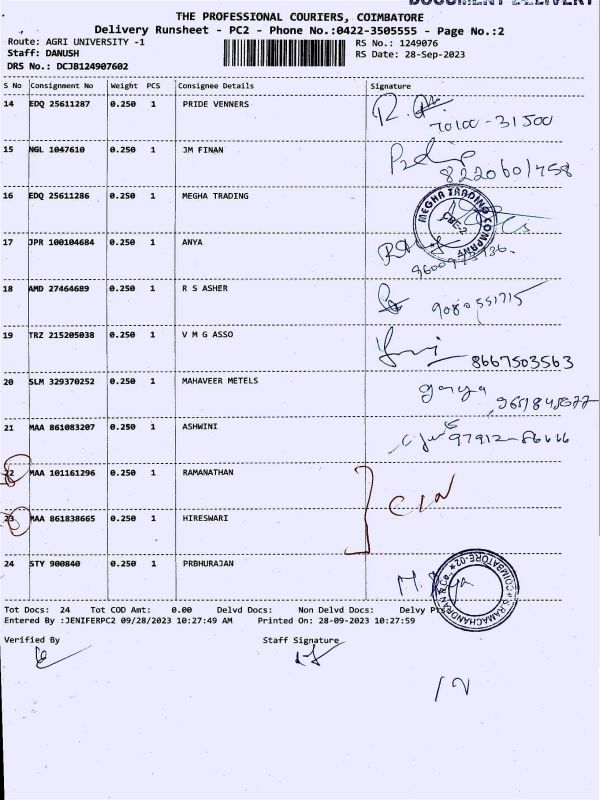 DOCUMENT DELIVERY
THE PROFESSIONAL COURIERS, COIMBATORE
Delivery Runsheet - PC2 - Phone No.:0422-3505555 - Page No.:2
Route: AGRI UNIVERSITY -1 RS No.: 1249076
Staff: DANUSH RS Date: 28-Sep-2023
DRS No.: DCJB124907602
S No Consignment No Weight PCS Consignee Details Signature
14 EDQ 25611287 0.250 1 PRIDE VENNERS
70100-31500
15 NGL 1047610 0.250 1 JM FINAN
8220601758
16 EDQ 25611286 0.250 1 MEGHA TRADING
MEGHA TRADING COMPANY CBE-2
17 JPR 100104684 0.250 1 ANYA
18 AMD 27464689 0.250 1 R S ASHER
9080551715
19 TRZ 215205038 0.250 1 V M G ASSO
8667503563
20 SLM 329370252 0.250 1 MAHAVEER METELS
21 MAA 861083207 0.250 1 ASHWINI
97912-86666
22 MAA 101161296 0.250 1 RAMANATHAN
23 MAA 861838665 0.250 1 HIRESWARI
24 STY 900840 0.250 1 PRBHURAJAN
RAMACHANDRAN & Co. * COIMBATORE-02
Tot Docs: 24 Tot COD Amt: 0.00 Delvd Docs: Non Delvd Docs: Delvy
Entered By :JENIFERPC2 09/28/2023 10:27:49 AM Printed On: 28-09-2023 10:27:59
Verified By Staff Signature